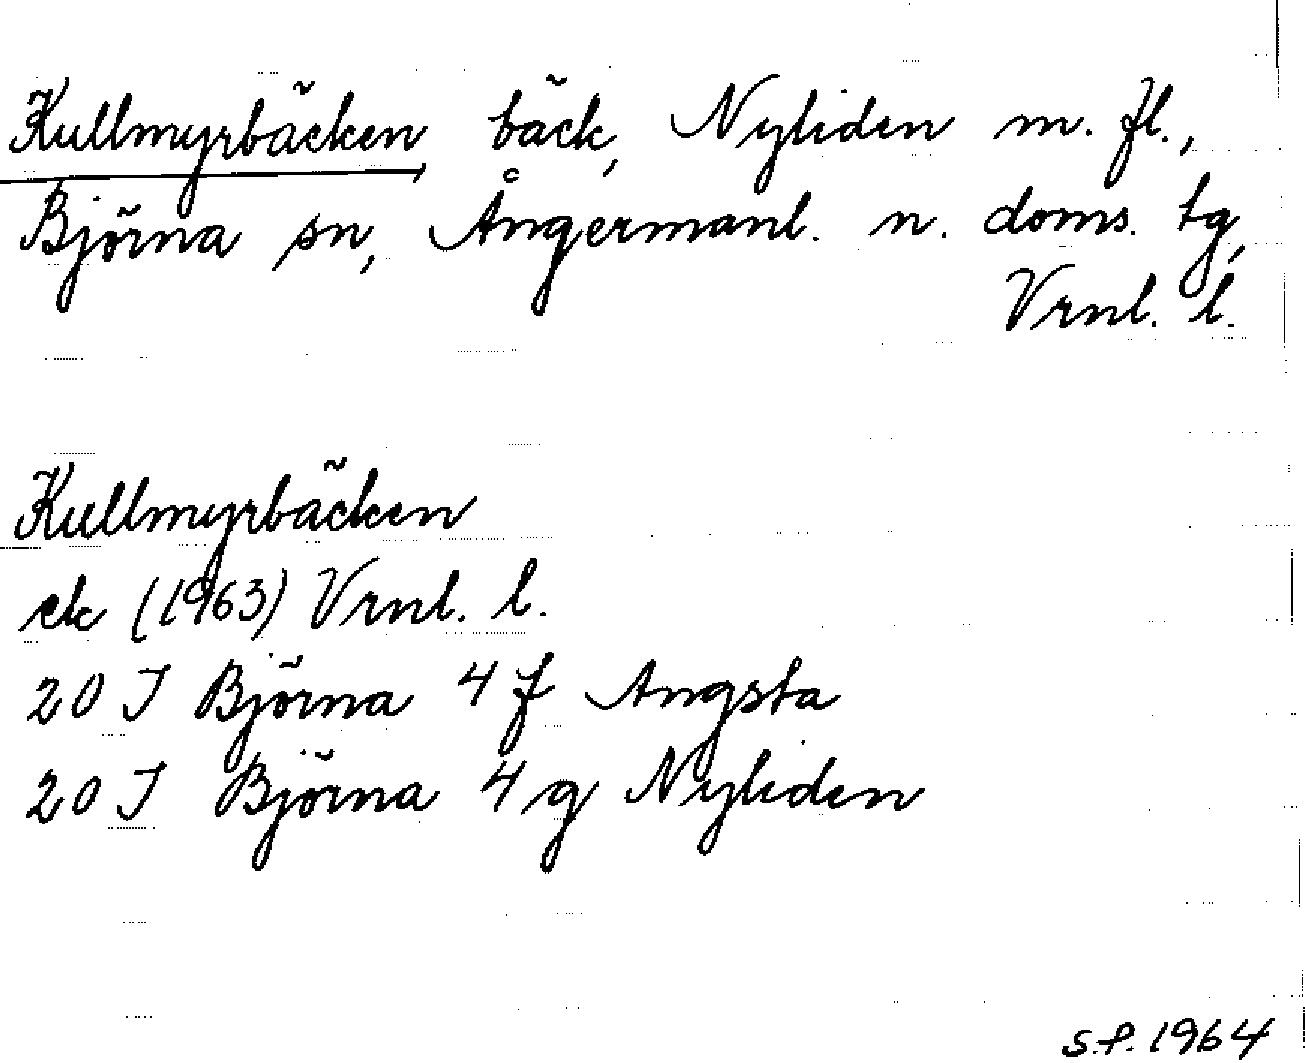 Kullmyrbäcken, bäck, Nyliden m. fl.,
Björna sn, Ångermanl. n. doms. tg,
Vrnl. l.
Kullmyrbäcken
ek (1963) Vrnl. l.
20 J Björna 4 f Angsta
20 J Björna 4 g Nyliden
S.P. 1964